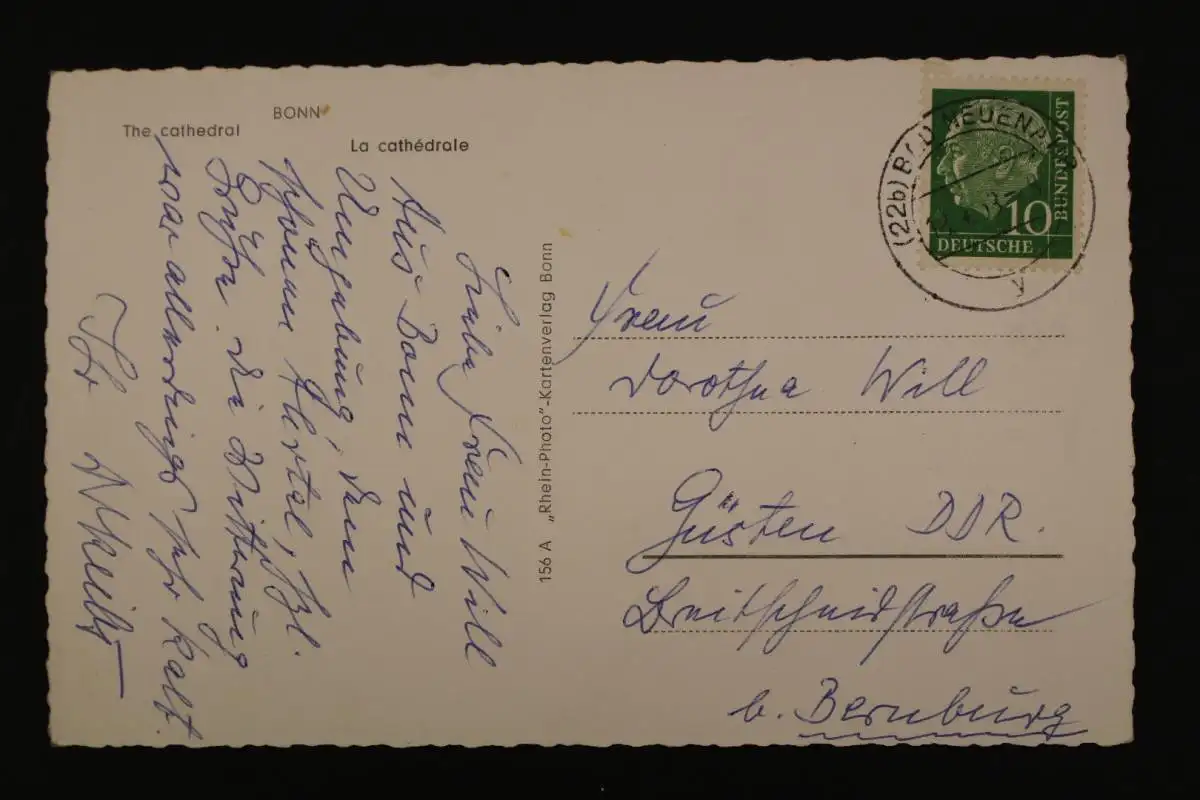 BONN
The cathedral
La cathédrale
Liebe Frau Will
Aus Bonn und
Umgebung, dem
schönen Ahrtal, hzl.
Grüße. Die Witterung
war allerdings sehr kalt.
Ihr
156 A „Rhein-Photo"-Kartenverlag Bonn
(22b) BAD NEUENAHR
y
10
DEUTSCHE
BUNDESPOST
Frau
Dorothea Will
Güsten DDR.
Breitscheidstraße
b. Bernburg